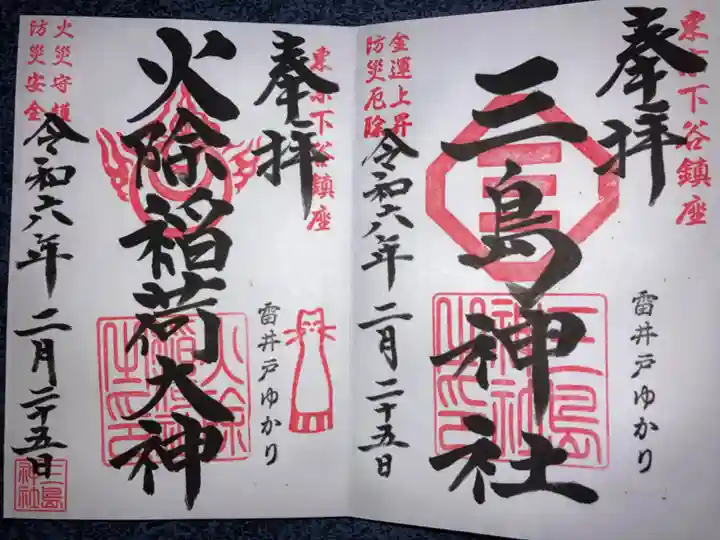 東京下谷鎮座
奉拝
三島神社
三島神社之印
雷井戸ゆかり
金運上昇
防災厄除
令和六年二月二十五日
東京下谷鎮座
奉拝
火除稲荷大神
雷井戸ゆかり
火災守護
防災安全
令和六年二月二十五日
三島神社